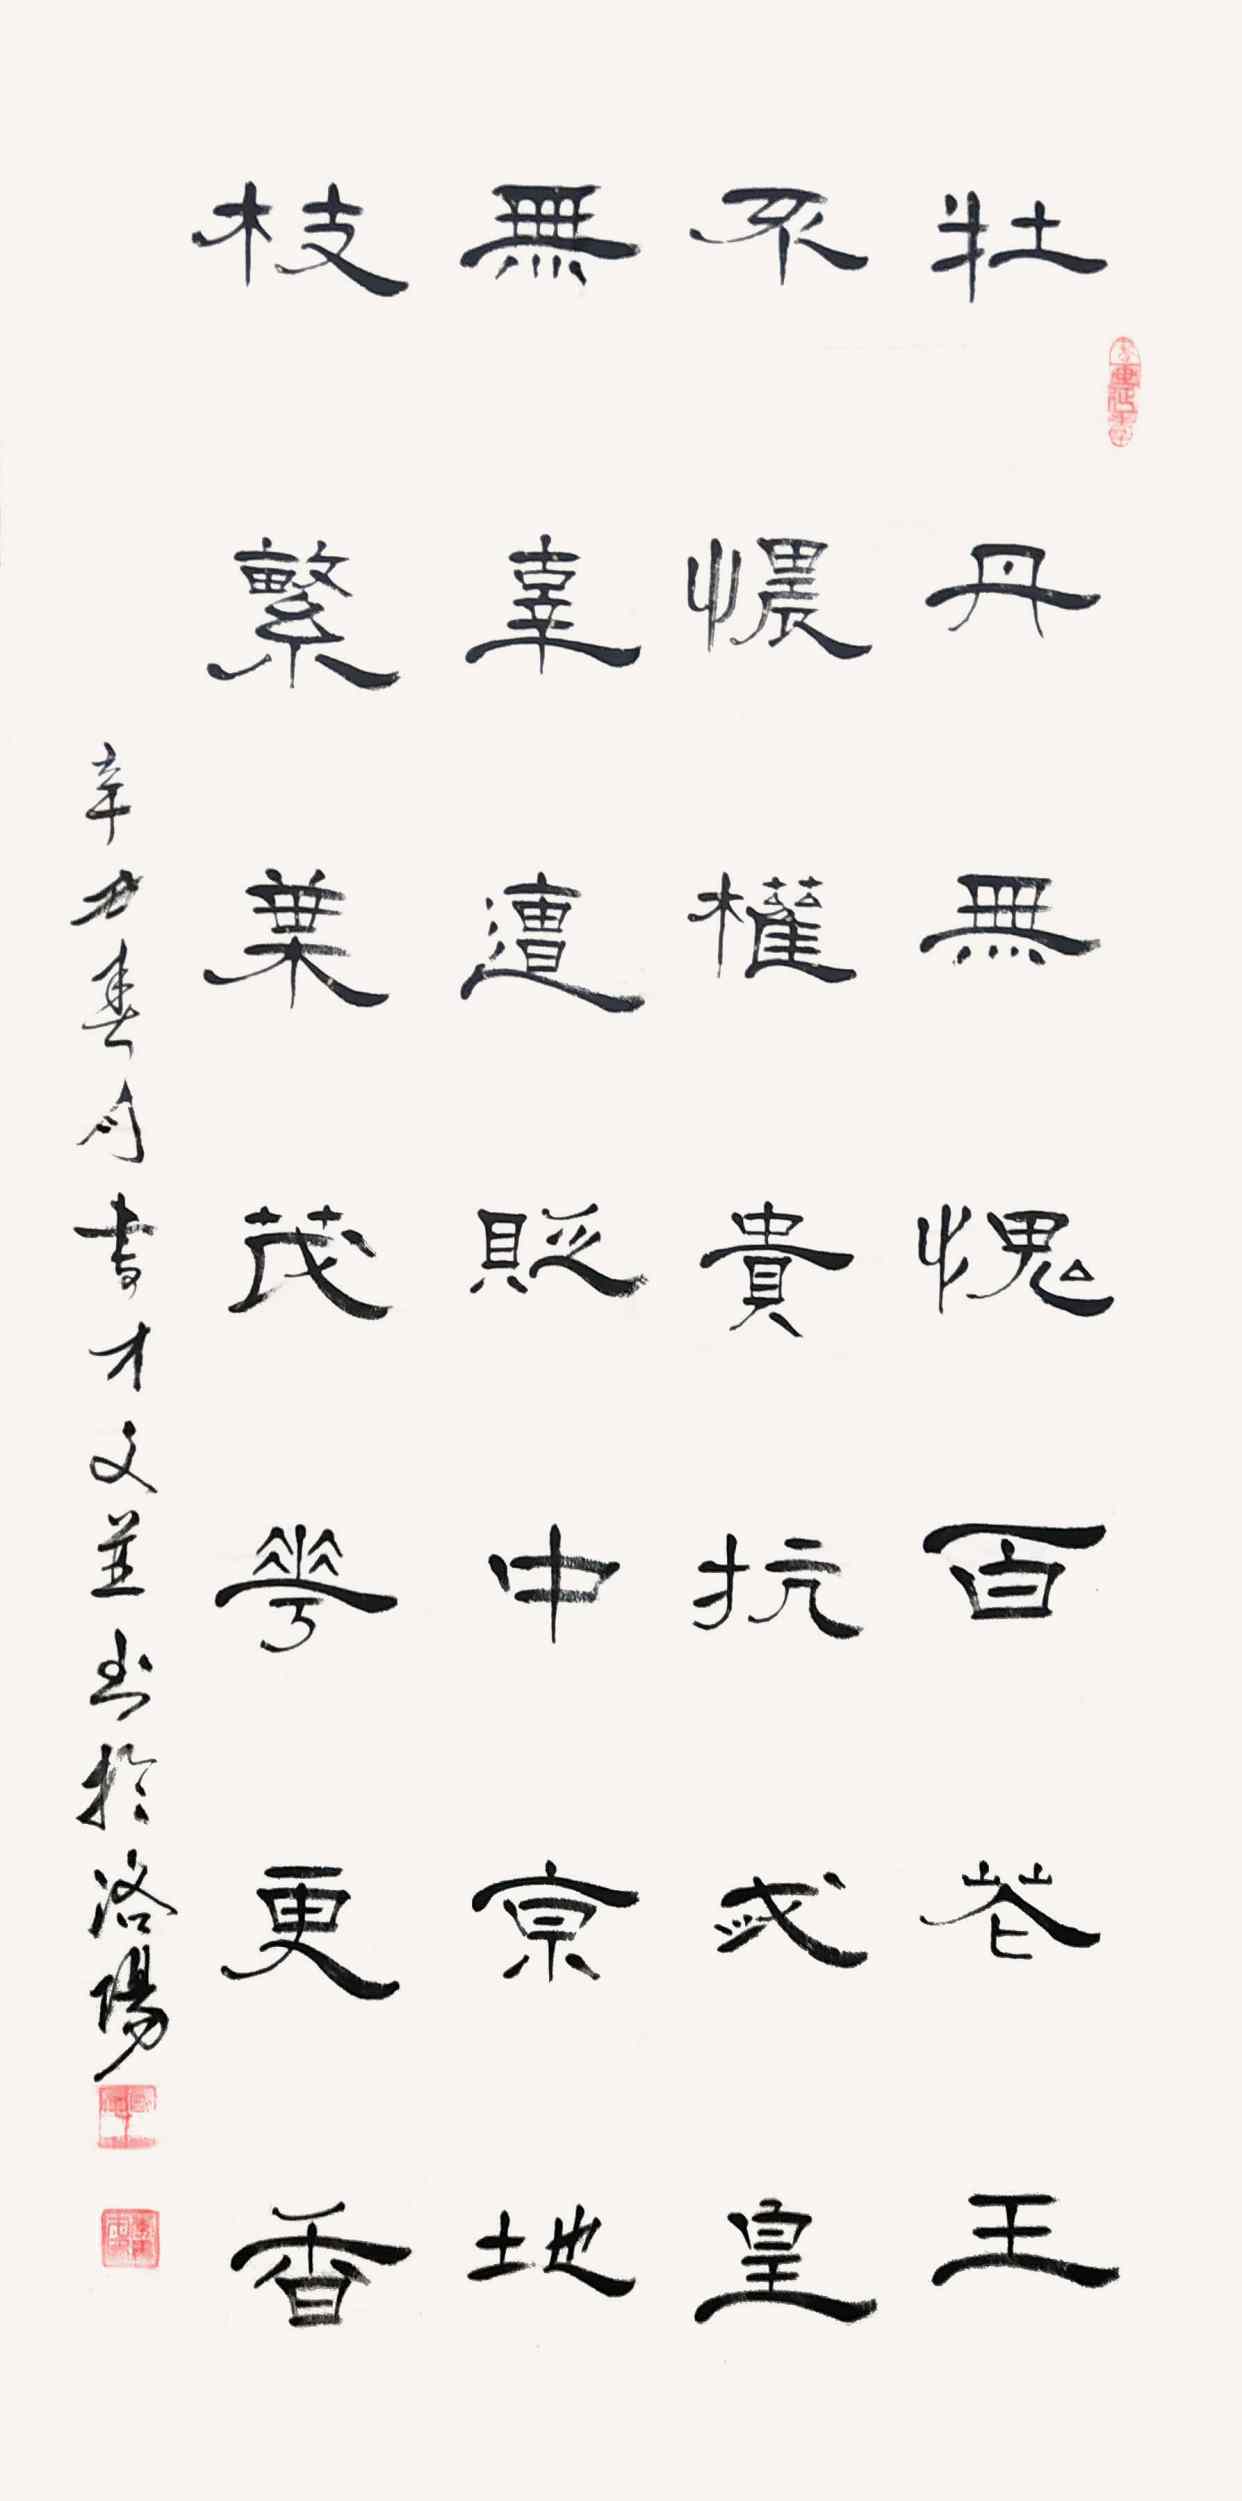 牡丹無愧百花王
不愄權貴抗武皇
無辜遭貶中京地
枝繁葉茂華更香
辛丑春月李才文並书於洛陽